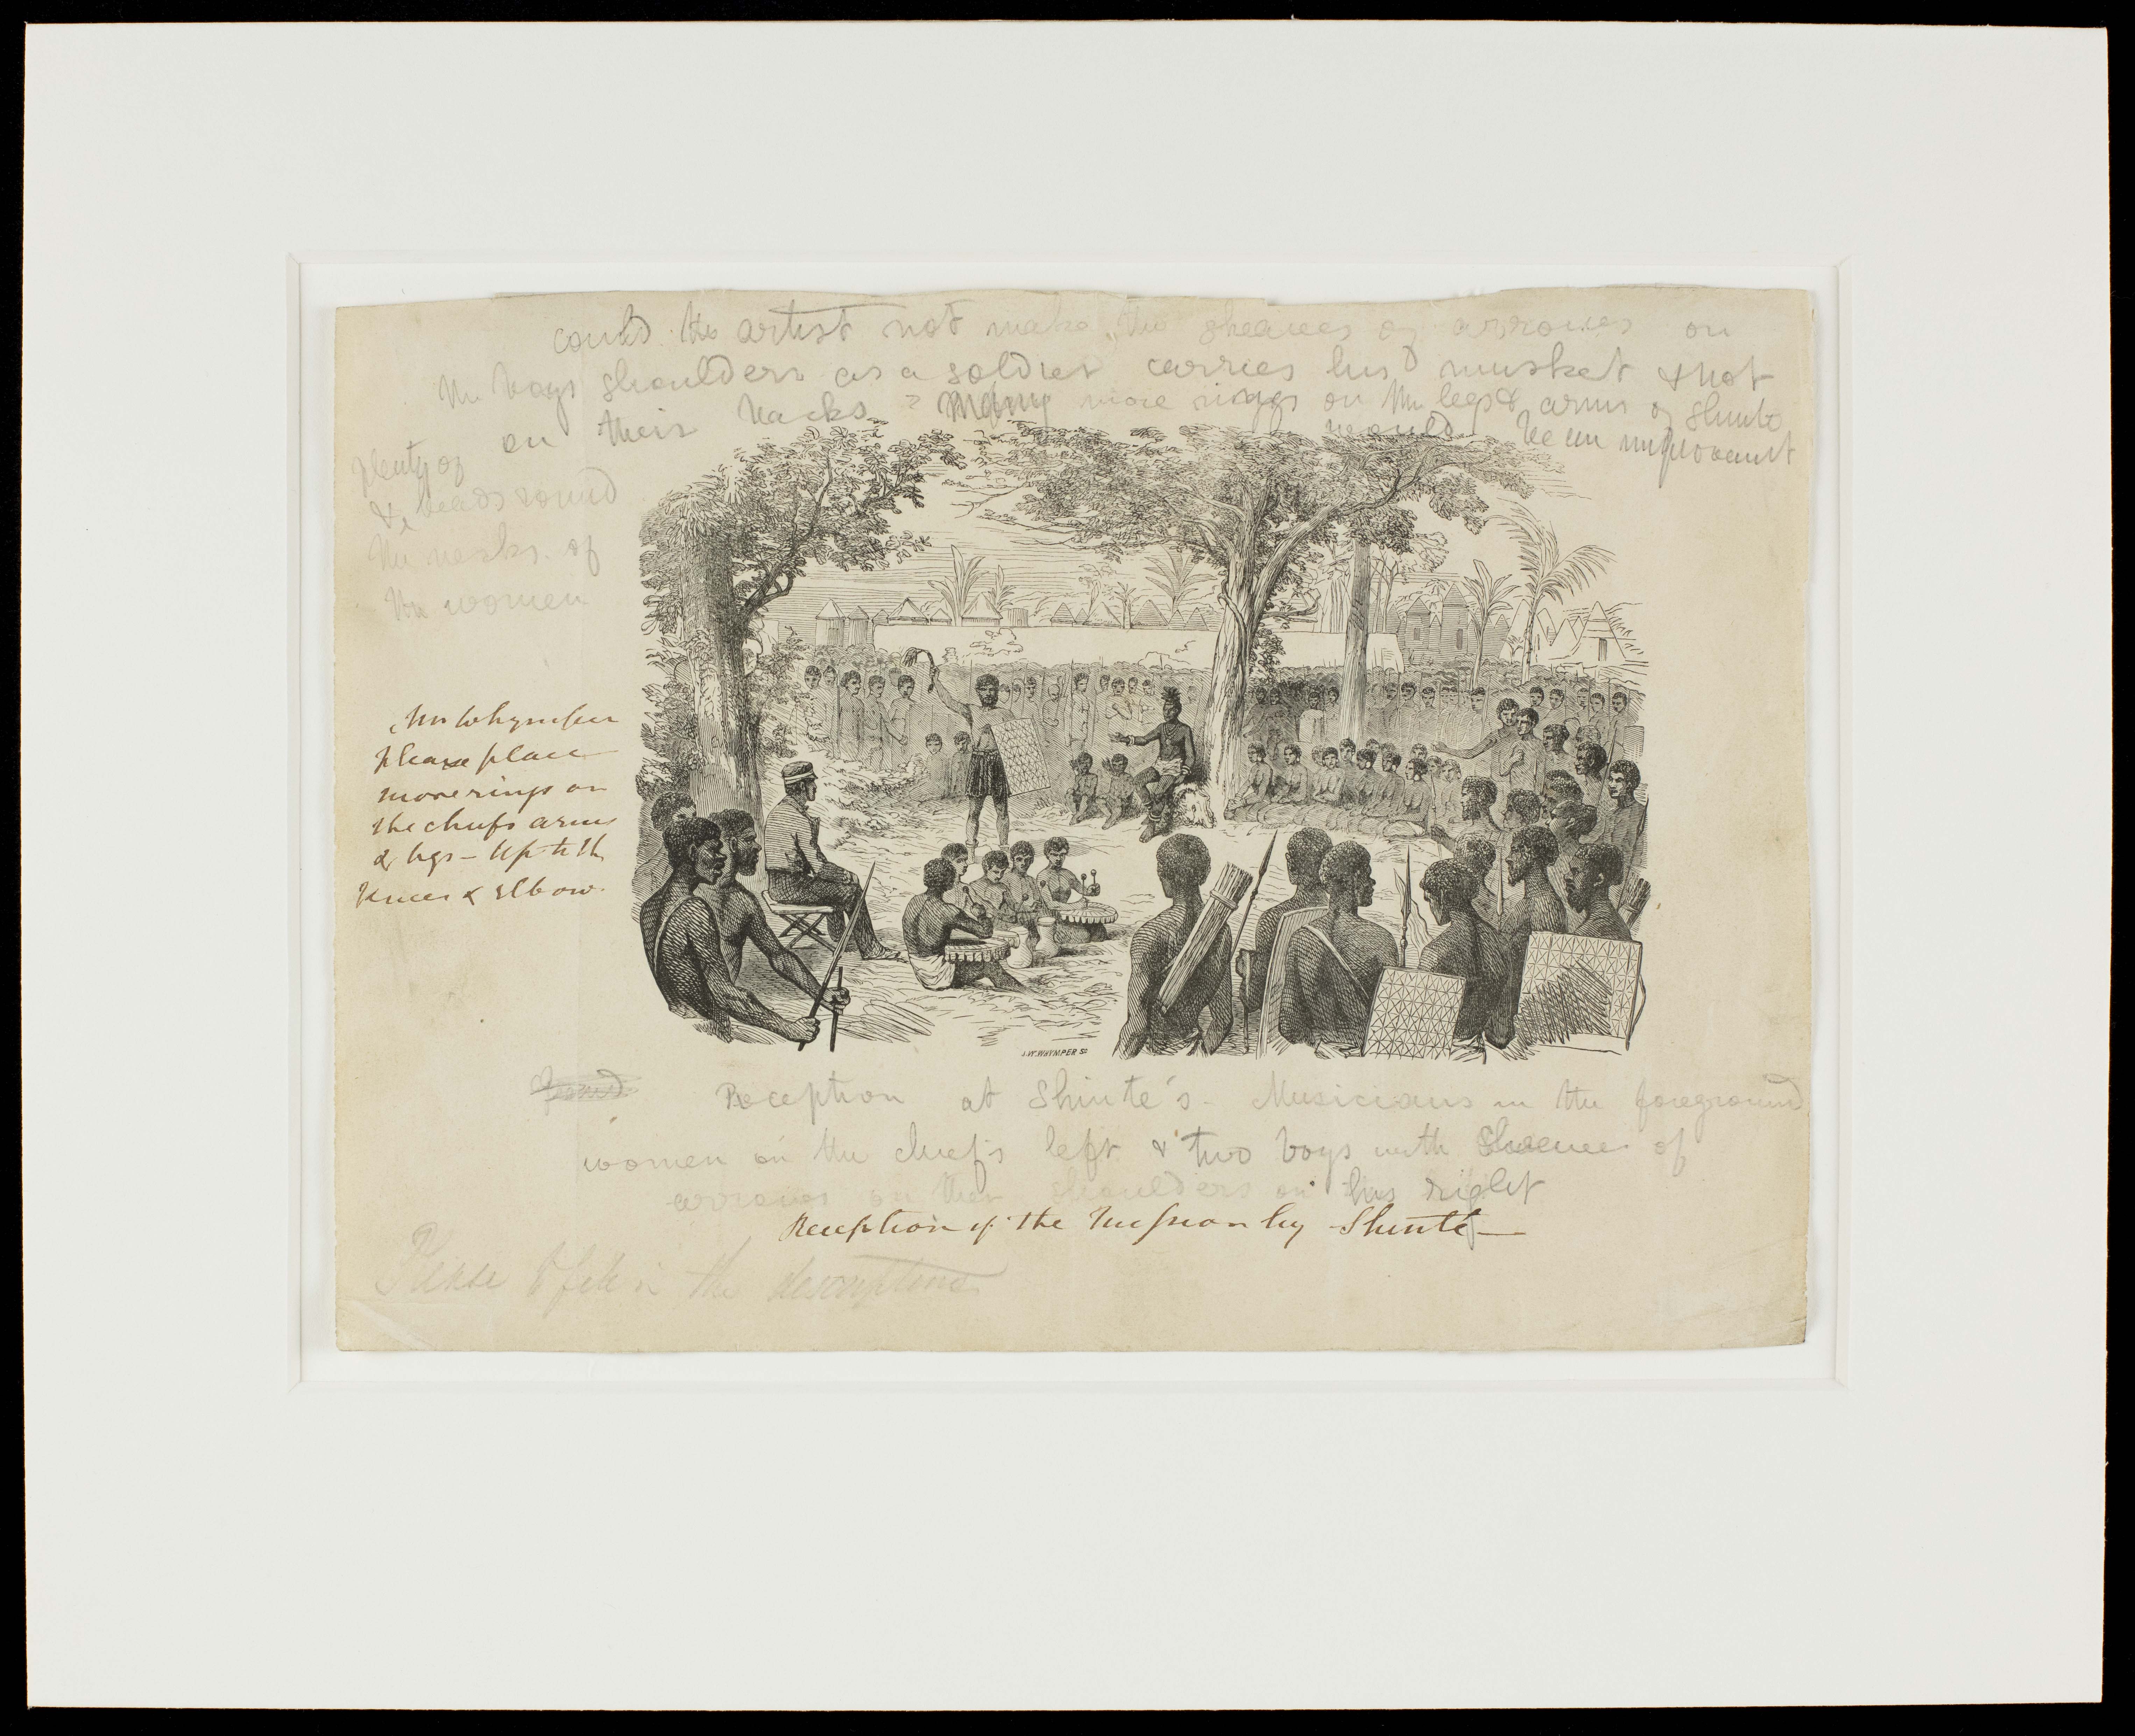 could the artist not make the sheaves of arrows on
the boys shoulders as a soldier carries his musket & not
on their backs? Many more rings on the legs & arms of Shinte
would be an improvement
plenty of
& beads round
the necks of
the women
Mr Whymper
please place
more rings on
the chiefs arms
& legs - Up to the
Knees & elbow.
J.W.WHYMPER SC
Reception at Shinte's - Musicians in the foreground
women on the chief's left & two boys with sheaves of
arrows on their shoulders on his right
Reception of the Mission by Shinté -
Please to fill in the descriptions